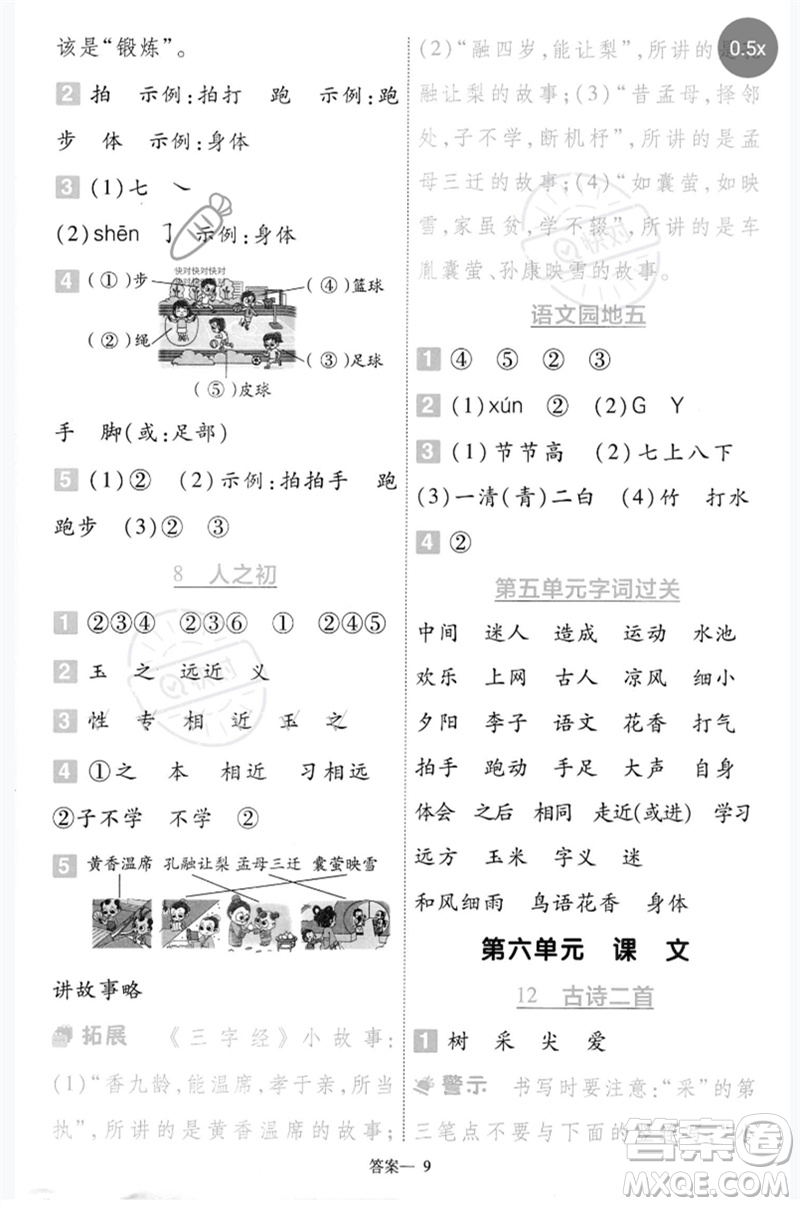 该是“锻炼”。
2 拍 示例:拍打 跑 示例:跑
步 体 示例:身体
3 (1)七 ㇏
(2)shēn 亅 示例:身体
4 (①)步
快对快对快对
(④)篮球
(②)绳
(③)足球
(⑤)皮球
手 脚(或:足部)
5 (1)② (2)示例:拍拍手 跑
跑步 (3)② ③
8 人之初
1 ②③④ ②③⑥ ① ②④⑤
2 玉 之 远近 义
3 性 专 相 近 玉 之
4 ①之 本 相近 习相远
②子不学 不学 ②
5 黄香温席 孔融让梨 孟母三迁 囊萤映雪
讲故事略
拓展 《三字经》小故事:
(1)“香九龄,能温席,孝于亲,所当
执”,所讲的是黄香温席的故事;
(2)“融四岁,能让梨”,所讲的是孔
融让梨的故事;(3)“昔孟母,择邻
处,子不学,断机杼”,所讲的是孟
母三迁的故事;(4)“如囊萤,如映
雪,家虽贫,学不辍”,所讲的是车
胤囊萤、孙康映雪的故事。
语文园地五
1 ④ ⑤ ② ③
2 (1)xún ② (2)G Y
3 (1)节节高 (2)七上八下
(3)一清(青)二白 (4)竹 打水
4 ②
第五单元字词过关
中间 迷人 造成 运动 水池
欢乐 上网 古文 凉风 细雨
夕阳 李子 语文 花香 打气
拍手 跑动 手足 大声 自身
体会 之后 相同 走近(或进) 学习
远方 玉米 字义 迷
和风细雨 鸟语花香 身体
第六单元 课 文
12 古诗二首
1 树 采 尖 爱
警示 书写时要注意:“采”的第
三笔点不要与下面的
答案— 9
0.5x
快对
答案圈
MXQE.COM